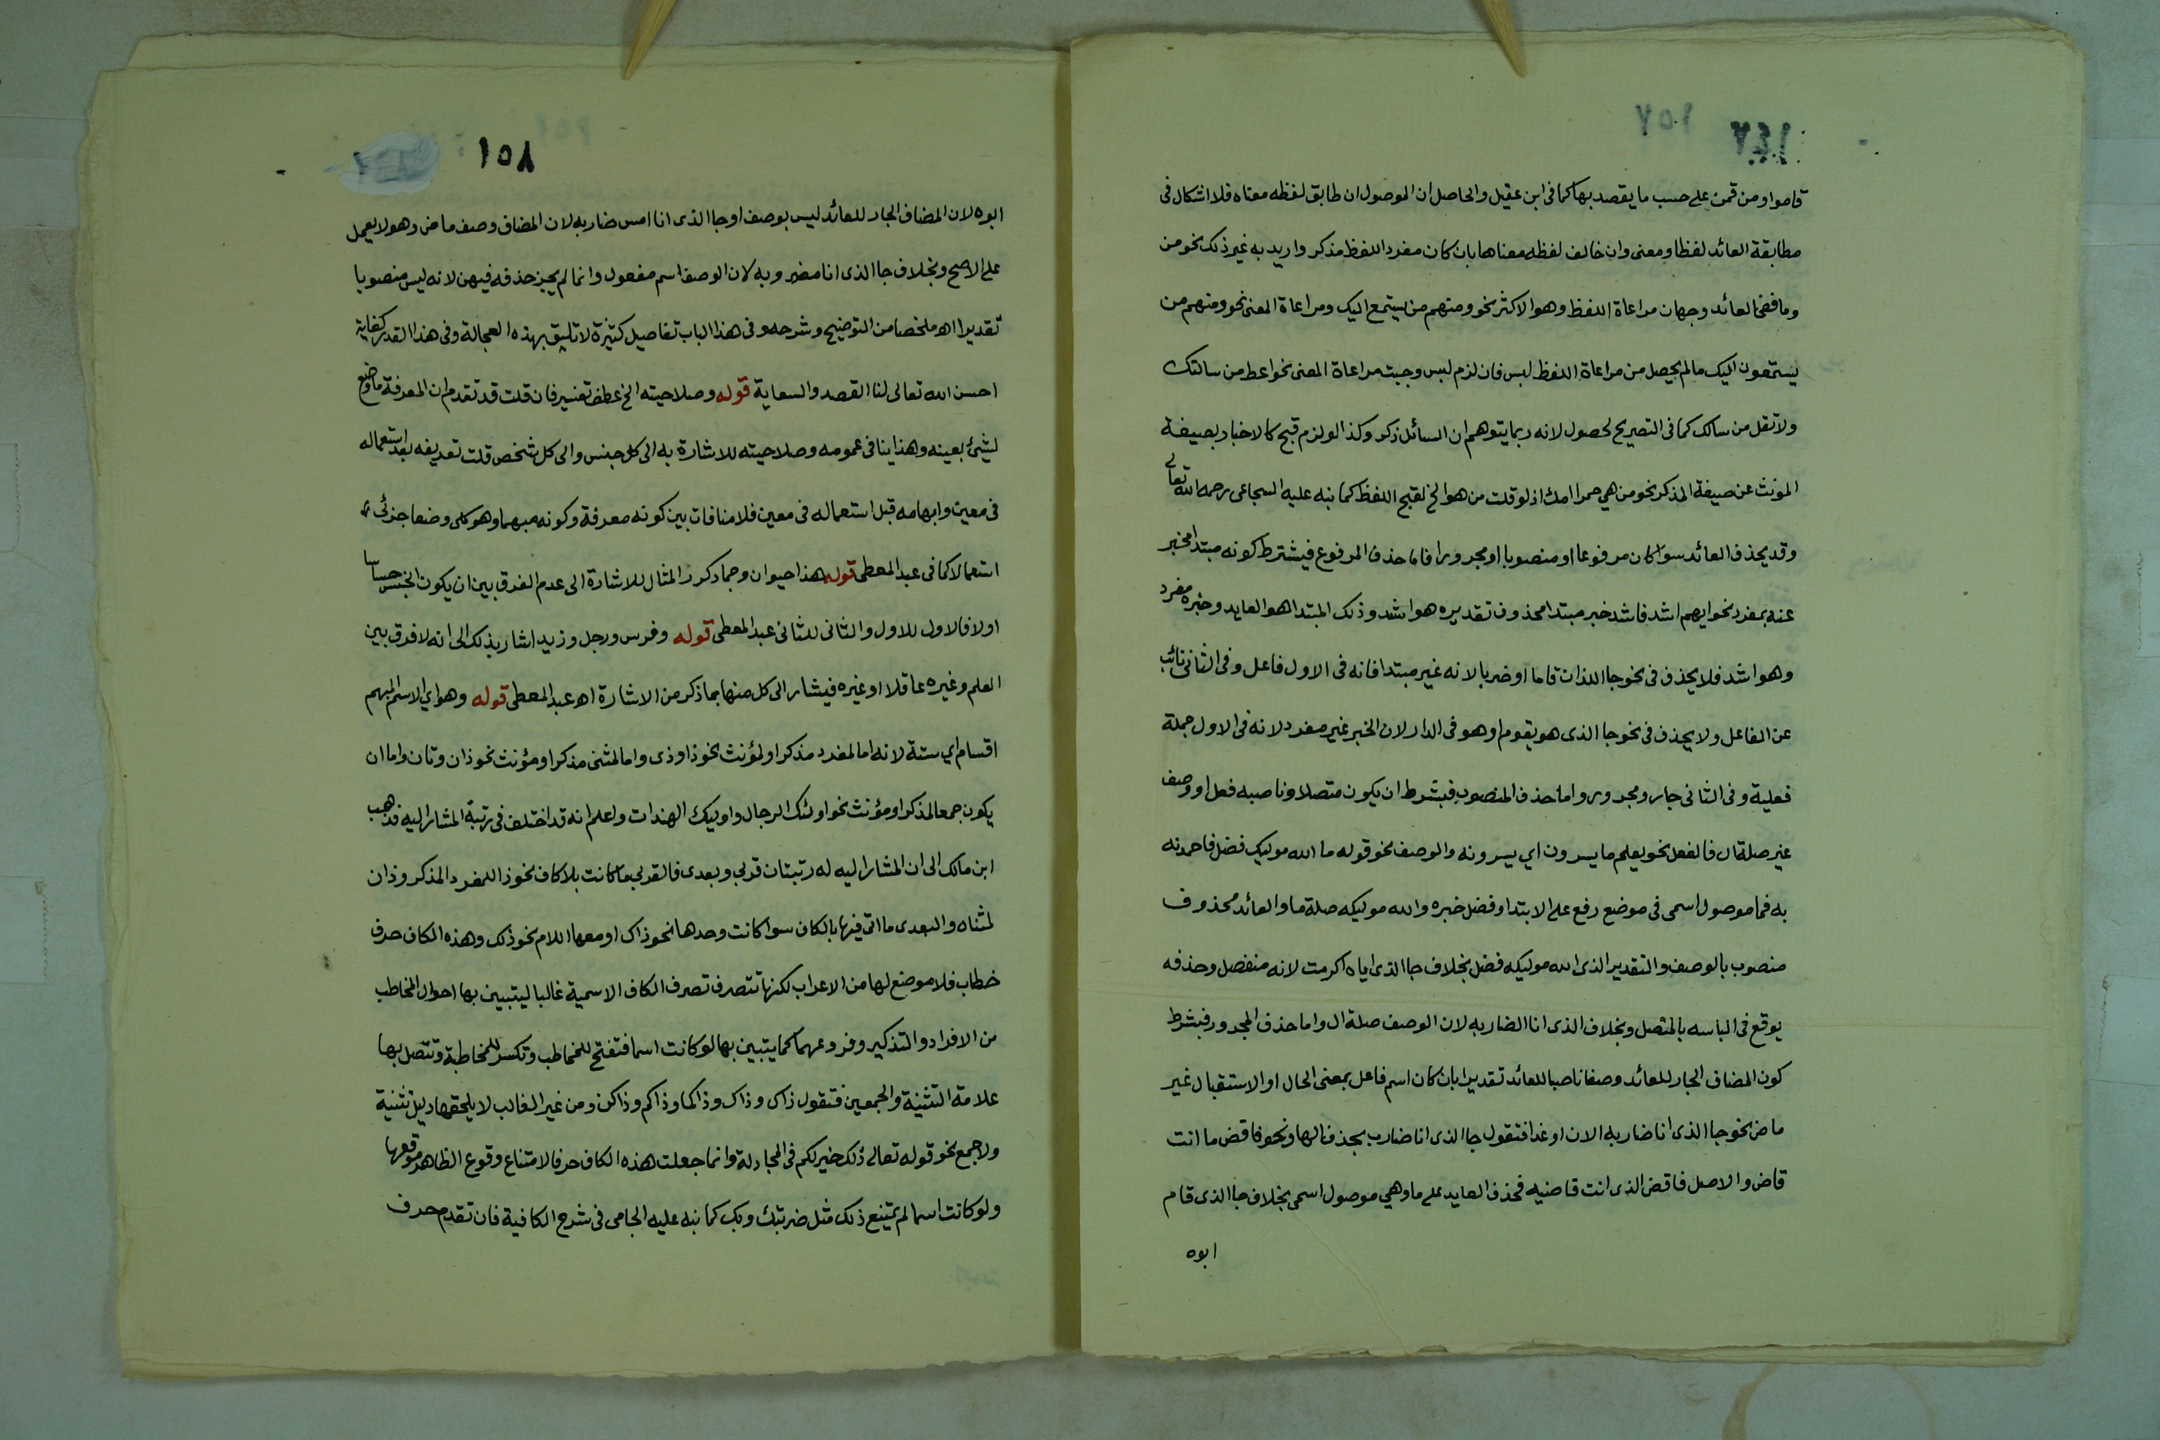 ١٥٧ ١٤٧
قاموا ومن قمن على حسب ما يقصد بها كما فى ابن عقيل والحاصل ان الموصول ان طابق لفظه معناه فلا اشكال فى
مطابقة العائد لفظا ومعنى وان خالف لفظه معناها بان كان مفرد اللفظ مذكر واريد به غير ذلك نحو من
وما ففى العائد وجهان مراعاة اللفظ وهو الاكثر نحو ومنهم من يستمع اليك ومراعاة المعنى نحو ومنهم من
يستمعون اليك مالم يحصل من مراعاة اللفظ لبس فان لزم لبس وجبت مراعاة المعنى نحو اعط من سالتك
ولا تقل من سالك كما فى التصريح لحصول لانه ربما يتوهم ان السائل ذكر وكذا لو لزم قبح كالاخبار بصيغة
المونث عن صيغة المذكر نحو من هى حمرا امك اذ لو قلت من هو الخ لقبح اللفظ كما نبه عليه السجاعى رحمه الله تعالى
وقد يحذف العائد سوا كان مرفوعا او منصوبا او مجرورا فاما حذف المرفوع فيشترط كونه مبتدا مخبر
عنه بمفرد نحو ايهم اشد فاشد خبر مبتدا محذوف تقديره هو اشد وذلك المبتدا هو العايد وخبره مفرد
وهو اشد فلا يحذف فى نحو جا اللذان قاما او ضربا لانه غير مبتدا فانه فى الاول فاعل وفى الثانى نائب
عن الفاعل ولا يحذف فى نحو جا الذى هو يقوم او هو فى الدار لان الخبر غير مفرد لانه فى الاول جملة
فعلية وفى الثانى جار ومجرور واما حذف المنصوب فبشرط ان يكون متصلا وناصبه فعل او وصف
غير صلة ال فالفعل نحو يعلم ما يسرون اي يسرونه والوصف نحو قوله ما الله موليك فضل فاحمدنه
به فما موصول اسمى فى موضع رفع على الابتدا وفضل خبره والله موليكه صلة ما والعائد محذوف
منصوب بالوصف والتقدير الذى الله موليكه فضل بخلاف جا الذى اياه اكرمت لانه منفصل وحذفه
يوقع فى الباسه بالمتصل وبخلاف الذى انا الضاربه لان الوصف صلة ال واما حذف المجرور فبشرط
كون المضاف الجار للعائد وصفا ناصبا للعائد تقديرا بان كان اسم فاعل بمعنى الحال او الاستقبال غير
ماض نحو جا الذى انا ضاربه الان او غدا فتقول جا الذى انا ضارب بحذف الها ونحو فاقض ما انت
قاض والاصل فاقض الذى انت قاضيه فحذف العايد على ما وهي موصول اسمى بخلاف جا الذى قام
ابوه
١٥٨
ابوه لان المضاف الجار للعائد ليس بوصف او جا الذى انا امس ضاربه لان المضاف وصف ماض وهو لا يعمل
على الاصح وبخلاف جا الذى انا مضروبه لان الوصف اسم مفعول وانما لم يجز حذفه فيهن لانه ليس منصوبا
تقديرا اه ملخصا من التوضيح وشرحه وفى هذا الباب تفاصيل كثيرة لا تليق بهذه العجالة وفى هذا القدر كفاية
احسن الله تعالى لنا القصد والسعاية قوله وصلاحيته الخ عطف تفسير فان قلت قد تقدم ان المعرفة ما وضع
لشيئ بعينه وهذا ينافى عمومه وصلاحيته للاشارة به الى كل جنس والى كل شخص قلت تعريفه بعد استعماله
فى معين وابهامه قبل استعماله فى معين فلا منافات بين كونه معرفة وكونه مبهما وهو كلى وضعا جزئى
استعمالا كما فى عبد المعطى قوله هذا حيوان وجماد كرر المثال للاشارة الى عدم الفرق بين ان يكون الجنس حساسا
اولا فالاول للاول والثانى للثانى عبد المعطى قوله وفرس ورجل وزيد اشار بذلك الى انه لا فرق بين
العلم وغيره عاقلا او غيره فيشار الى كل منها بما ذكر من الاشارة اه عبد المعطى قوله وهو اي الاسم المبهم
اقسام اي ستة لانه اما لمفرد مذكر او لمؤنث نحو ذا وذى واما لمثنى مذكر او مؤنث نحو ذان وتان واما ان
يكون جمعا لمذكر او مؤنث نحو اولئك الرجال واوليك الهندات واعلم انه قد اختلف فى رتبة المشار اليه فذهب
ابن مالك الى ان المشار اليه له رتبتان قربى وبعدى فالقربى ما كانت بلا كاف نحو ذا للمفرد المذكر وذان
لمثناه والبعدى ما اتى فيها بالكاف سوا كانت وحدها نحو ذاك او معها اللام نحو ذلك وهذه الكاف حرف
خطاب فلا موضع لها من الاعراب لكنها تتصرف تصرف الكاف الاسمية غالبا ليتبين بها احوال المخاطب
من الافراد والتذكير وفروعهما كما يتبين بها لو كانت اسما فتفتح للمخاطب وتكسر للمخاطبة وتتصل بها
علامة التثنية والجمعين فتقول ذاك وذاك وذاكما وذاكم وذاكن ومن غير الغالب لا يلحقها دليل تثنية
ولا جمع نحو قوله تعالى ذلك خير لكم فى المجادلة وانما جعلت هذه الكاف حرفا لامتناع وقوع الظاهر موقعها
ولو كانت اسما لم يمتنع ذلك مثل ضربتك وبك كما نبه عليه الجامى فى شرح الكافية فان تقدم حرف